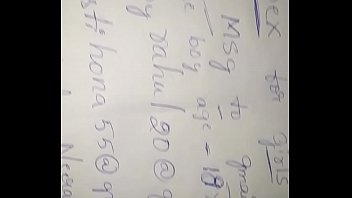 ex for girls
Msg to gmai
e boy age = 18
y rahul20@g
sti hona 55@g